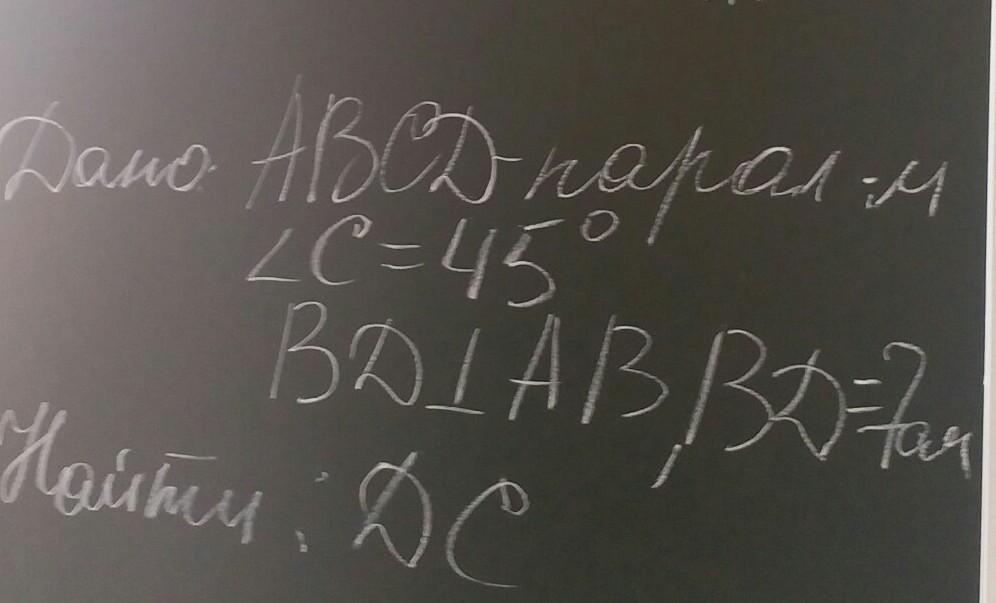 Дано: ABCD-парал-м
∠C=45°
BD⊥AB, BD=7см
Найти: DC